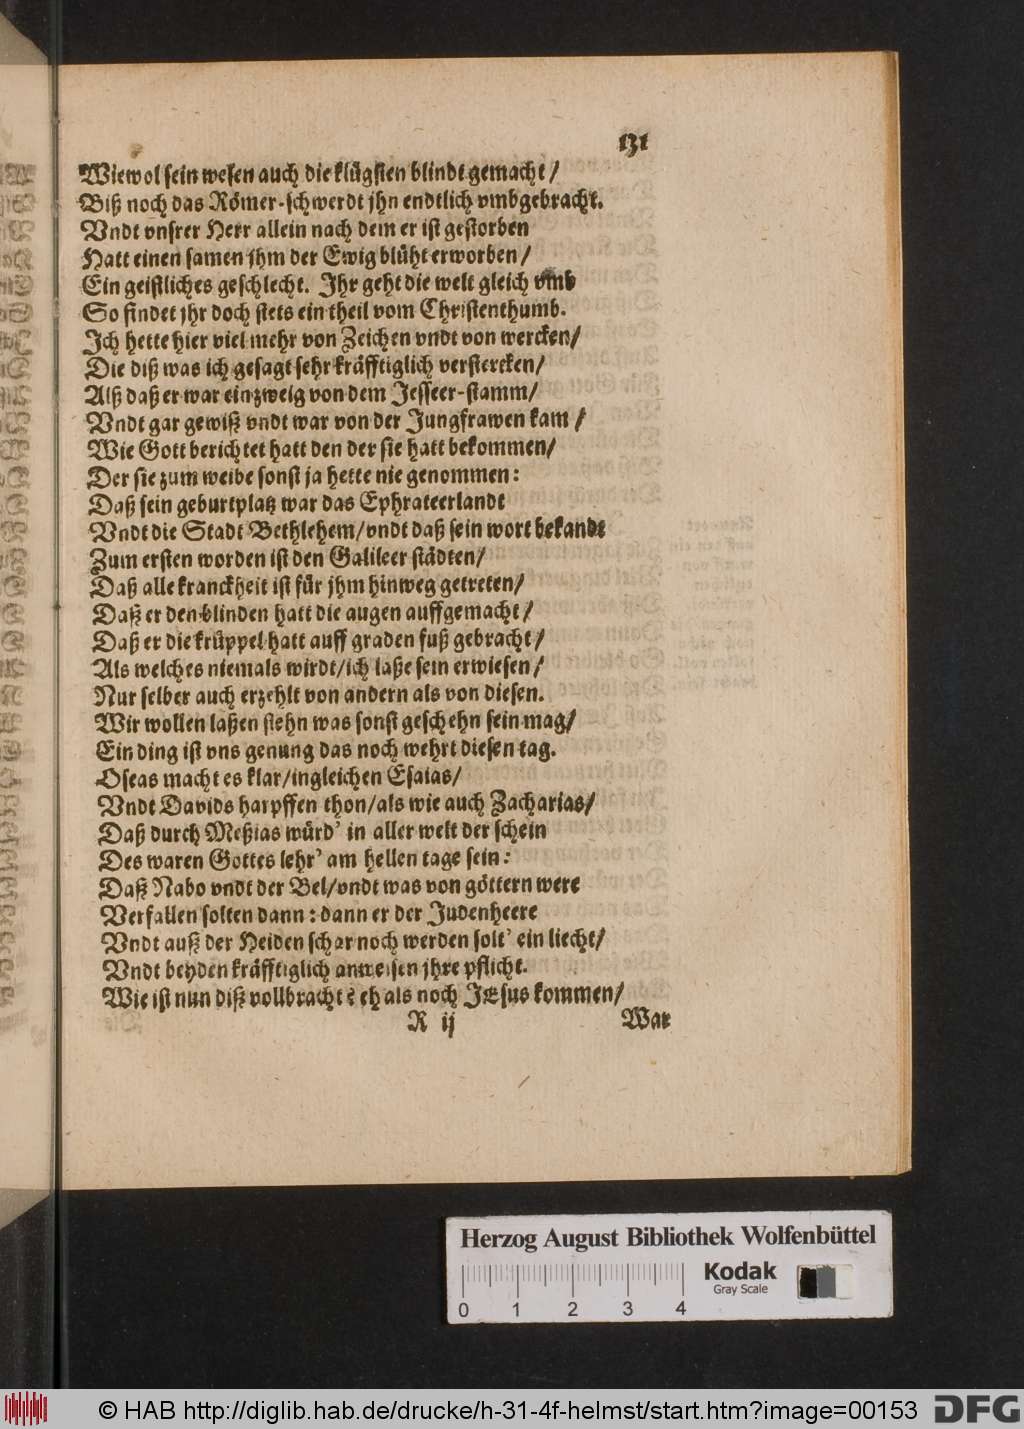 131
Wiewol sein wesen auch die klügsten blindt gemacht /
Biß noch das Römer-schwerdt jhn endtlich vmbgebracht.
Vndt vnsrer Herr allein nach dem er ist gestorben
Hatt einen samen jhm der Ewig blüht erworben /
Ein geistliches geschlecht. Ihr geht die welt gleich vmb
So findet jhr doch stets ein theil vom Christenthumb.
Ich hette hier viel mehr von Zeichen vndt von wercken/
Die diß was ich gesagt sehr kräfftiglich verstercken/
Alß daß er war ein zweig von dem Jesseer-stamm/
Vndt gar gewiß vndt war von der Jungfrawen kam /
Wie Gott berichtet hatt den der sie hatt bekommen/
Der sie zum weibe sonst ja hette nie genommen:
Daß sein geburtplatz war das Ephrateerlandt
Vndt die Stadt Bethlehem/vndt daß sein wort bekandt
Zum ersten worden ist den Galileer städten/
Daß alle kranckheit ist für jhm hinweg getreten/
Daß er den blinden hatt die augen auffgemacht/
Daß er die krüppel hatt auff graden fuß gebracht/
Als welches niemals wirdt/ich laße sein erwiesen/
Nur selber auch erzehlt von andern als von diesen.
Wir wollen laßen stehn was sonst geschehn sein mag/
Ein ding ist vns genung das noch wehrt diesen tag.
Oseas macht es klar/ingleichen Esaias/
Vndt Davids harpffen thon/als wie auch Zacharias/
Daß durch Meßias würd' in aller welt der schein
Des waren Gottes lehr' am hellen tage sein:
Daß Nabo vndt der Bel/vndt was von göttern were
Verfallen solten dann: dann er der Judenheere
Vndt auß der Heiden schar noch werden solt' ein liecht/
Vndt beyden kräfftiglich anweisen jhre pflicht.
Wie ist nun diß vollbracht? eh als noch JEsus kommen/
R ij War
Herzog August Bibliothek Wolfenbüttel
Kodak
Gray Scale
0 1 2 3 4
© HAB http://diglib.hab.de/drucke/h-31-4f-helmst/start.htm?image=00153
DFG